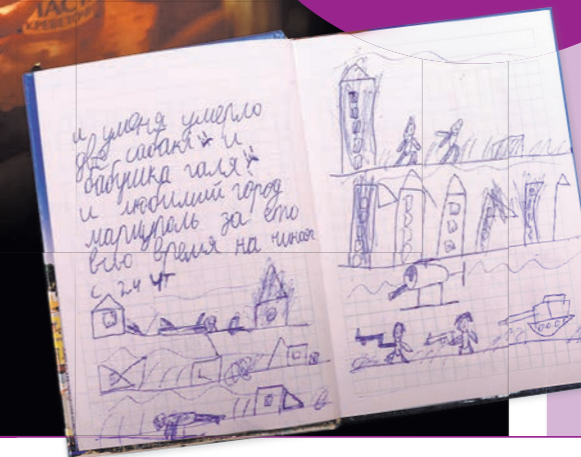 ЛАСТ
КРЕВЕТОЧН
и уменя умерло
две сабаки и
бабушка галя
и любимий город
мариуполь за ето
всё время на чиная
с 24 чт